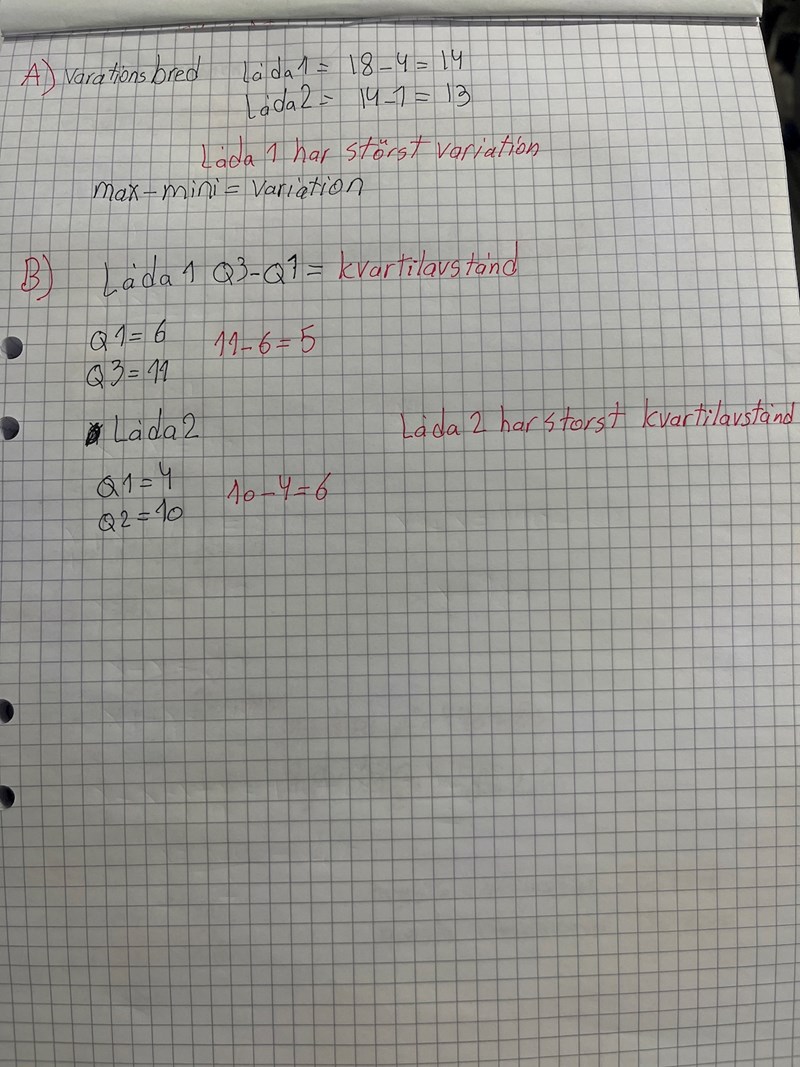 A) Varationsbred Låda 1 = 18 - 4 = 14
Låda 2 = 14 - 1 = 13
Låda 1 har störst variation
max - mini = variation
B) Låda 1 Q3 - Q1 = kvartilavstånd
Q1 = 6 11 - 6 = 5
Q3 = 11
Låda 2 Låda 2 har storst kvartilavstånd
Q1 = 4 10 - 4 = 6
Q2 = 10